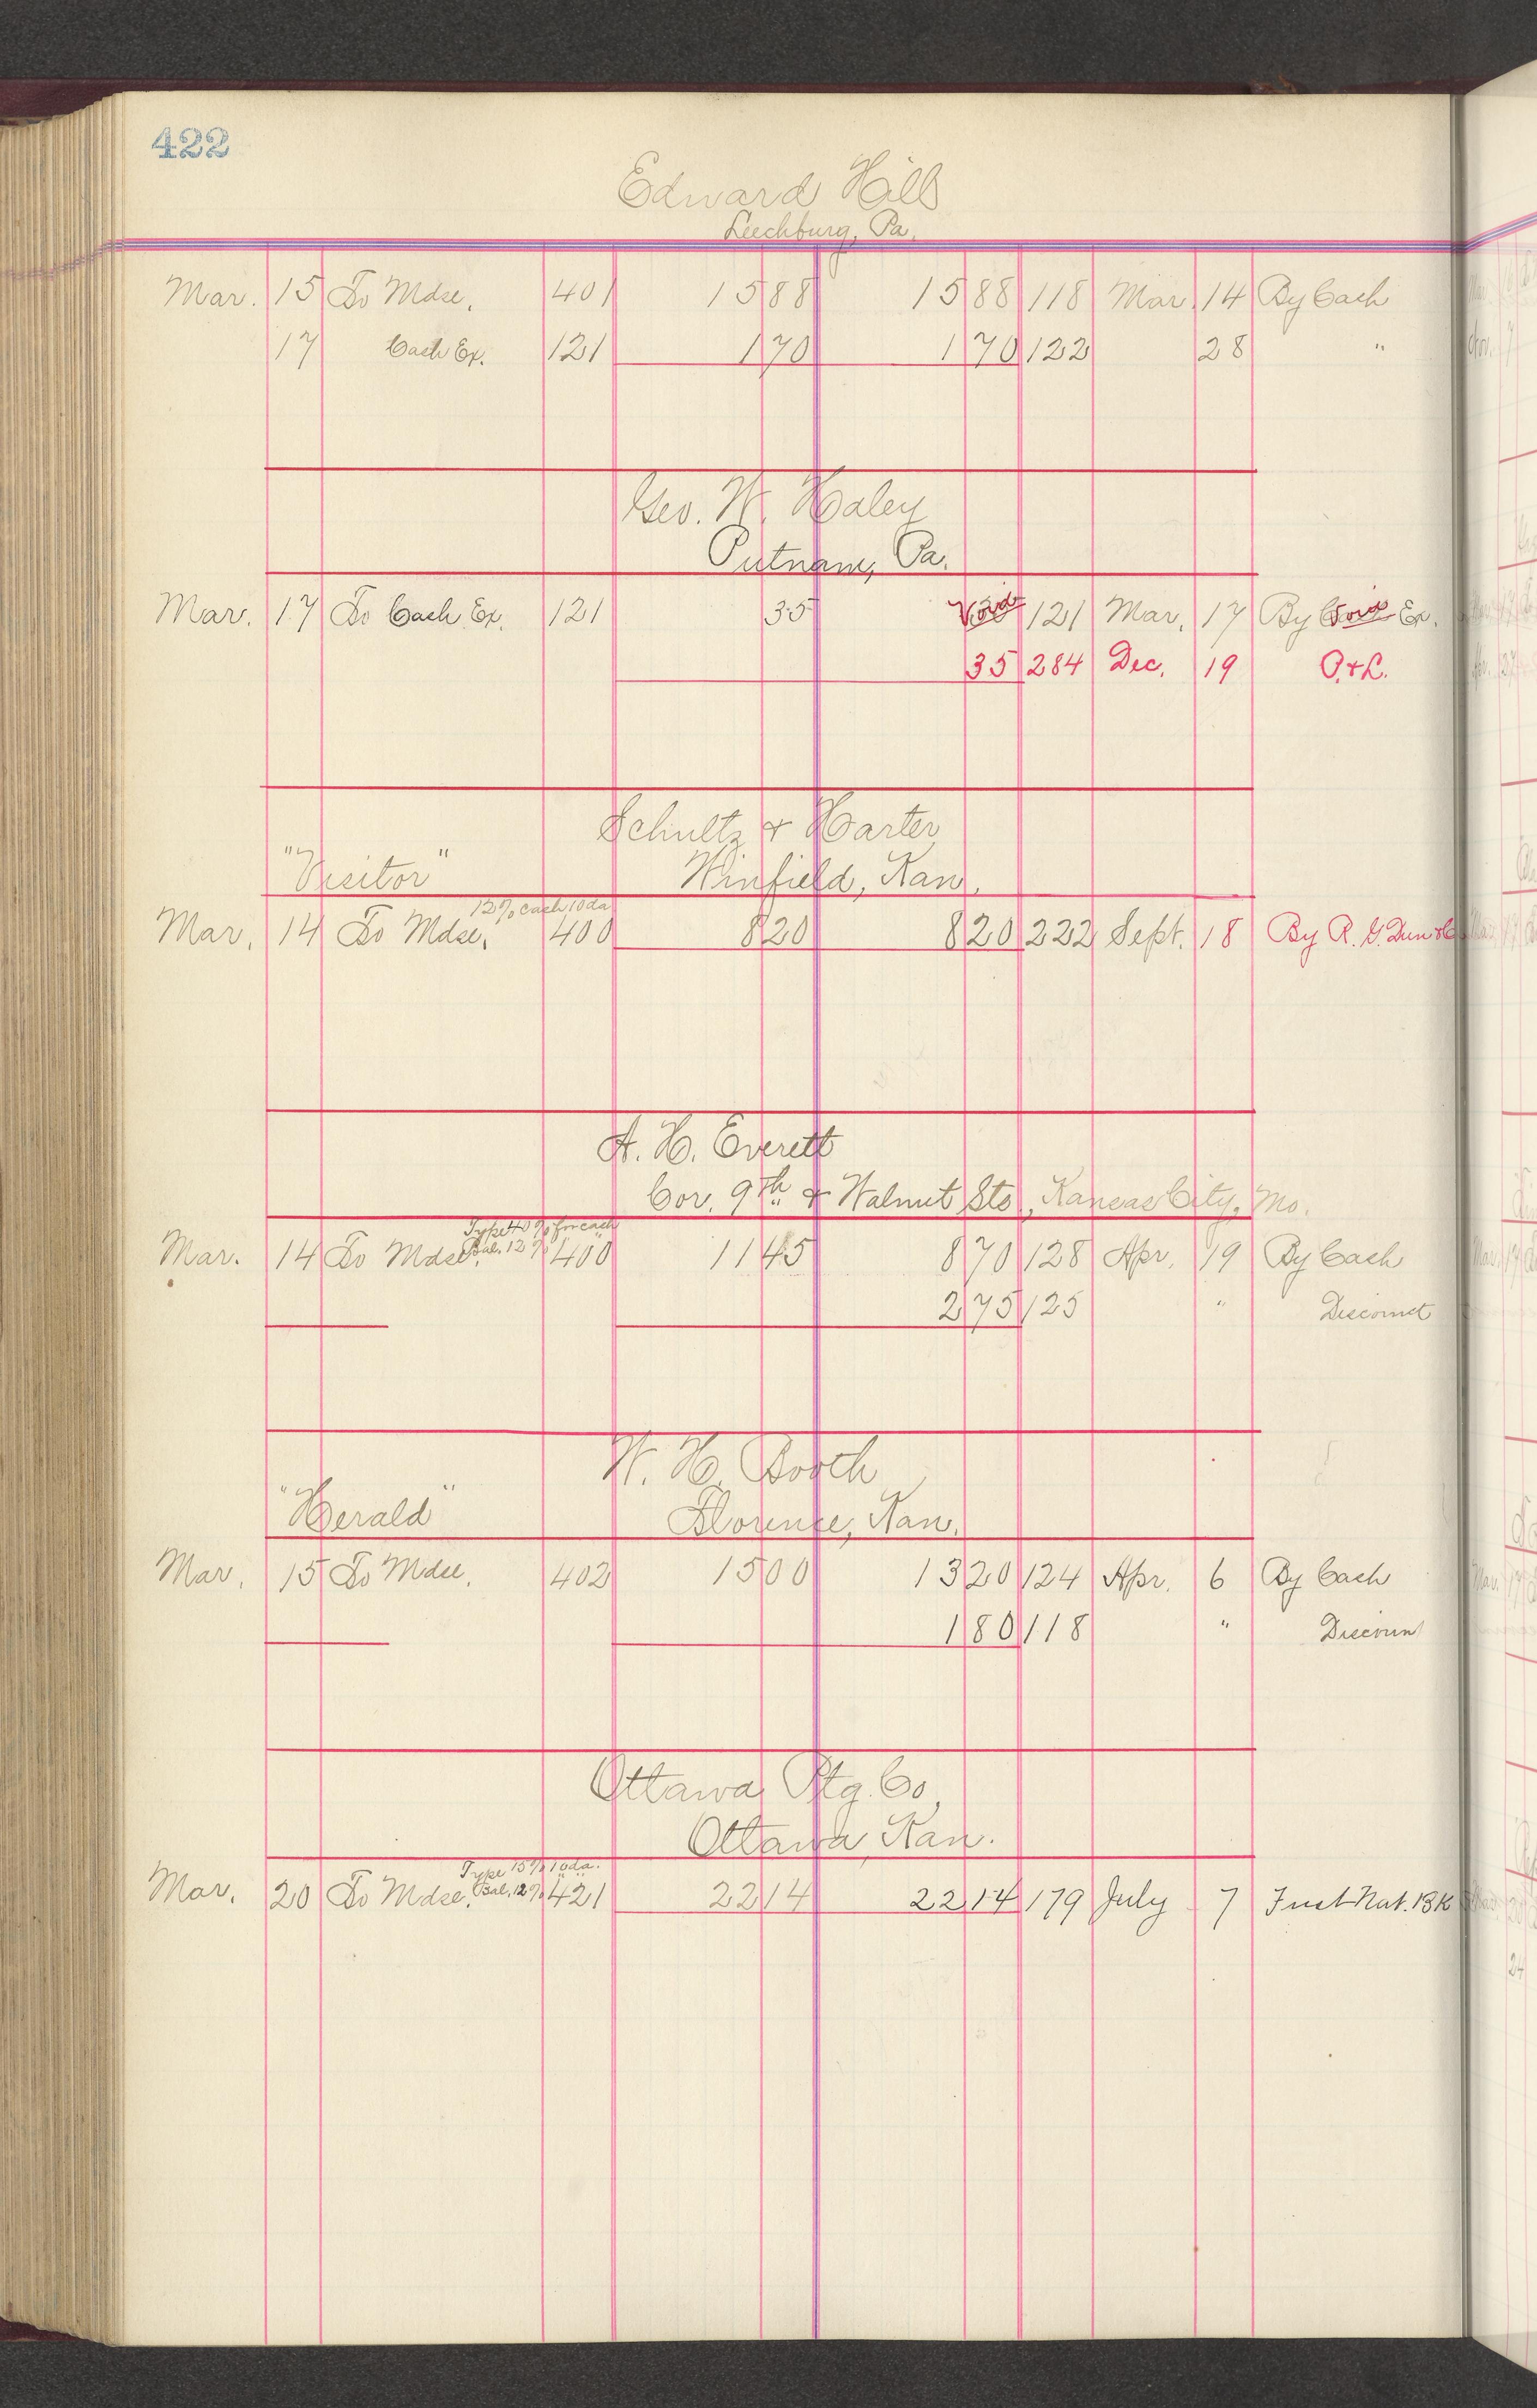 422
Edward Hill
Leechburg, Pa.
Mar. 15 To Mdse. 401 15 88 15 88 118 Mar. 14 By Cash
17 Cash Ex. 121 1 70 1 70 122 28 "
Geo. W. Haley
Putnam, Pa.
Mar. 17 To Cash Ex. 121 35 Void 121 Mar. 17 By Void Ex.
35 284 Dec. 19 P. & L.
Schultz & Harter
"Visitor" Winfield, Kan.
12% cash 10 da
Mar. 14 To Mdse. 400 8 20 8 20 222 Sept. 18 By R. G. Dun & Co
A. H. Everett
Cor. 9th & Walnut Sts, Kansas City, Mo.
Type 40% for cash
Mar. 14 To Mdse. Bal. 12% 400 11 45 8 70 128 Apr. 19 By Cash
2 75 125 " Discount
W. H. Booth
"Herald" Florence, Kan.
Mar. 15 To Mdse. 402 15 00 13 20 124 Apr. 6 By Cash
1 80 118 " Discount
Ottawa Ptg. Co.
Ottawa, Kan.
Type 15% 10 da.
Mar. 20 To Mdse. Bal. 12% 421 22 14 22 14 179 July 7 First Nat. Bk